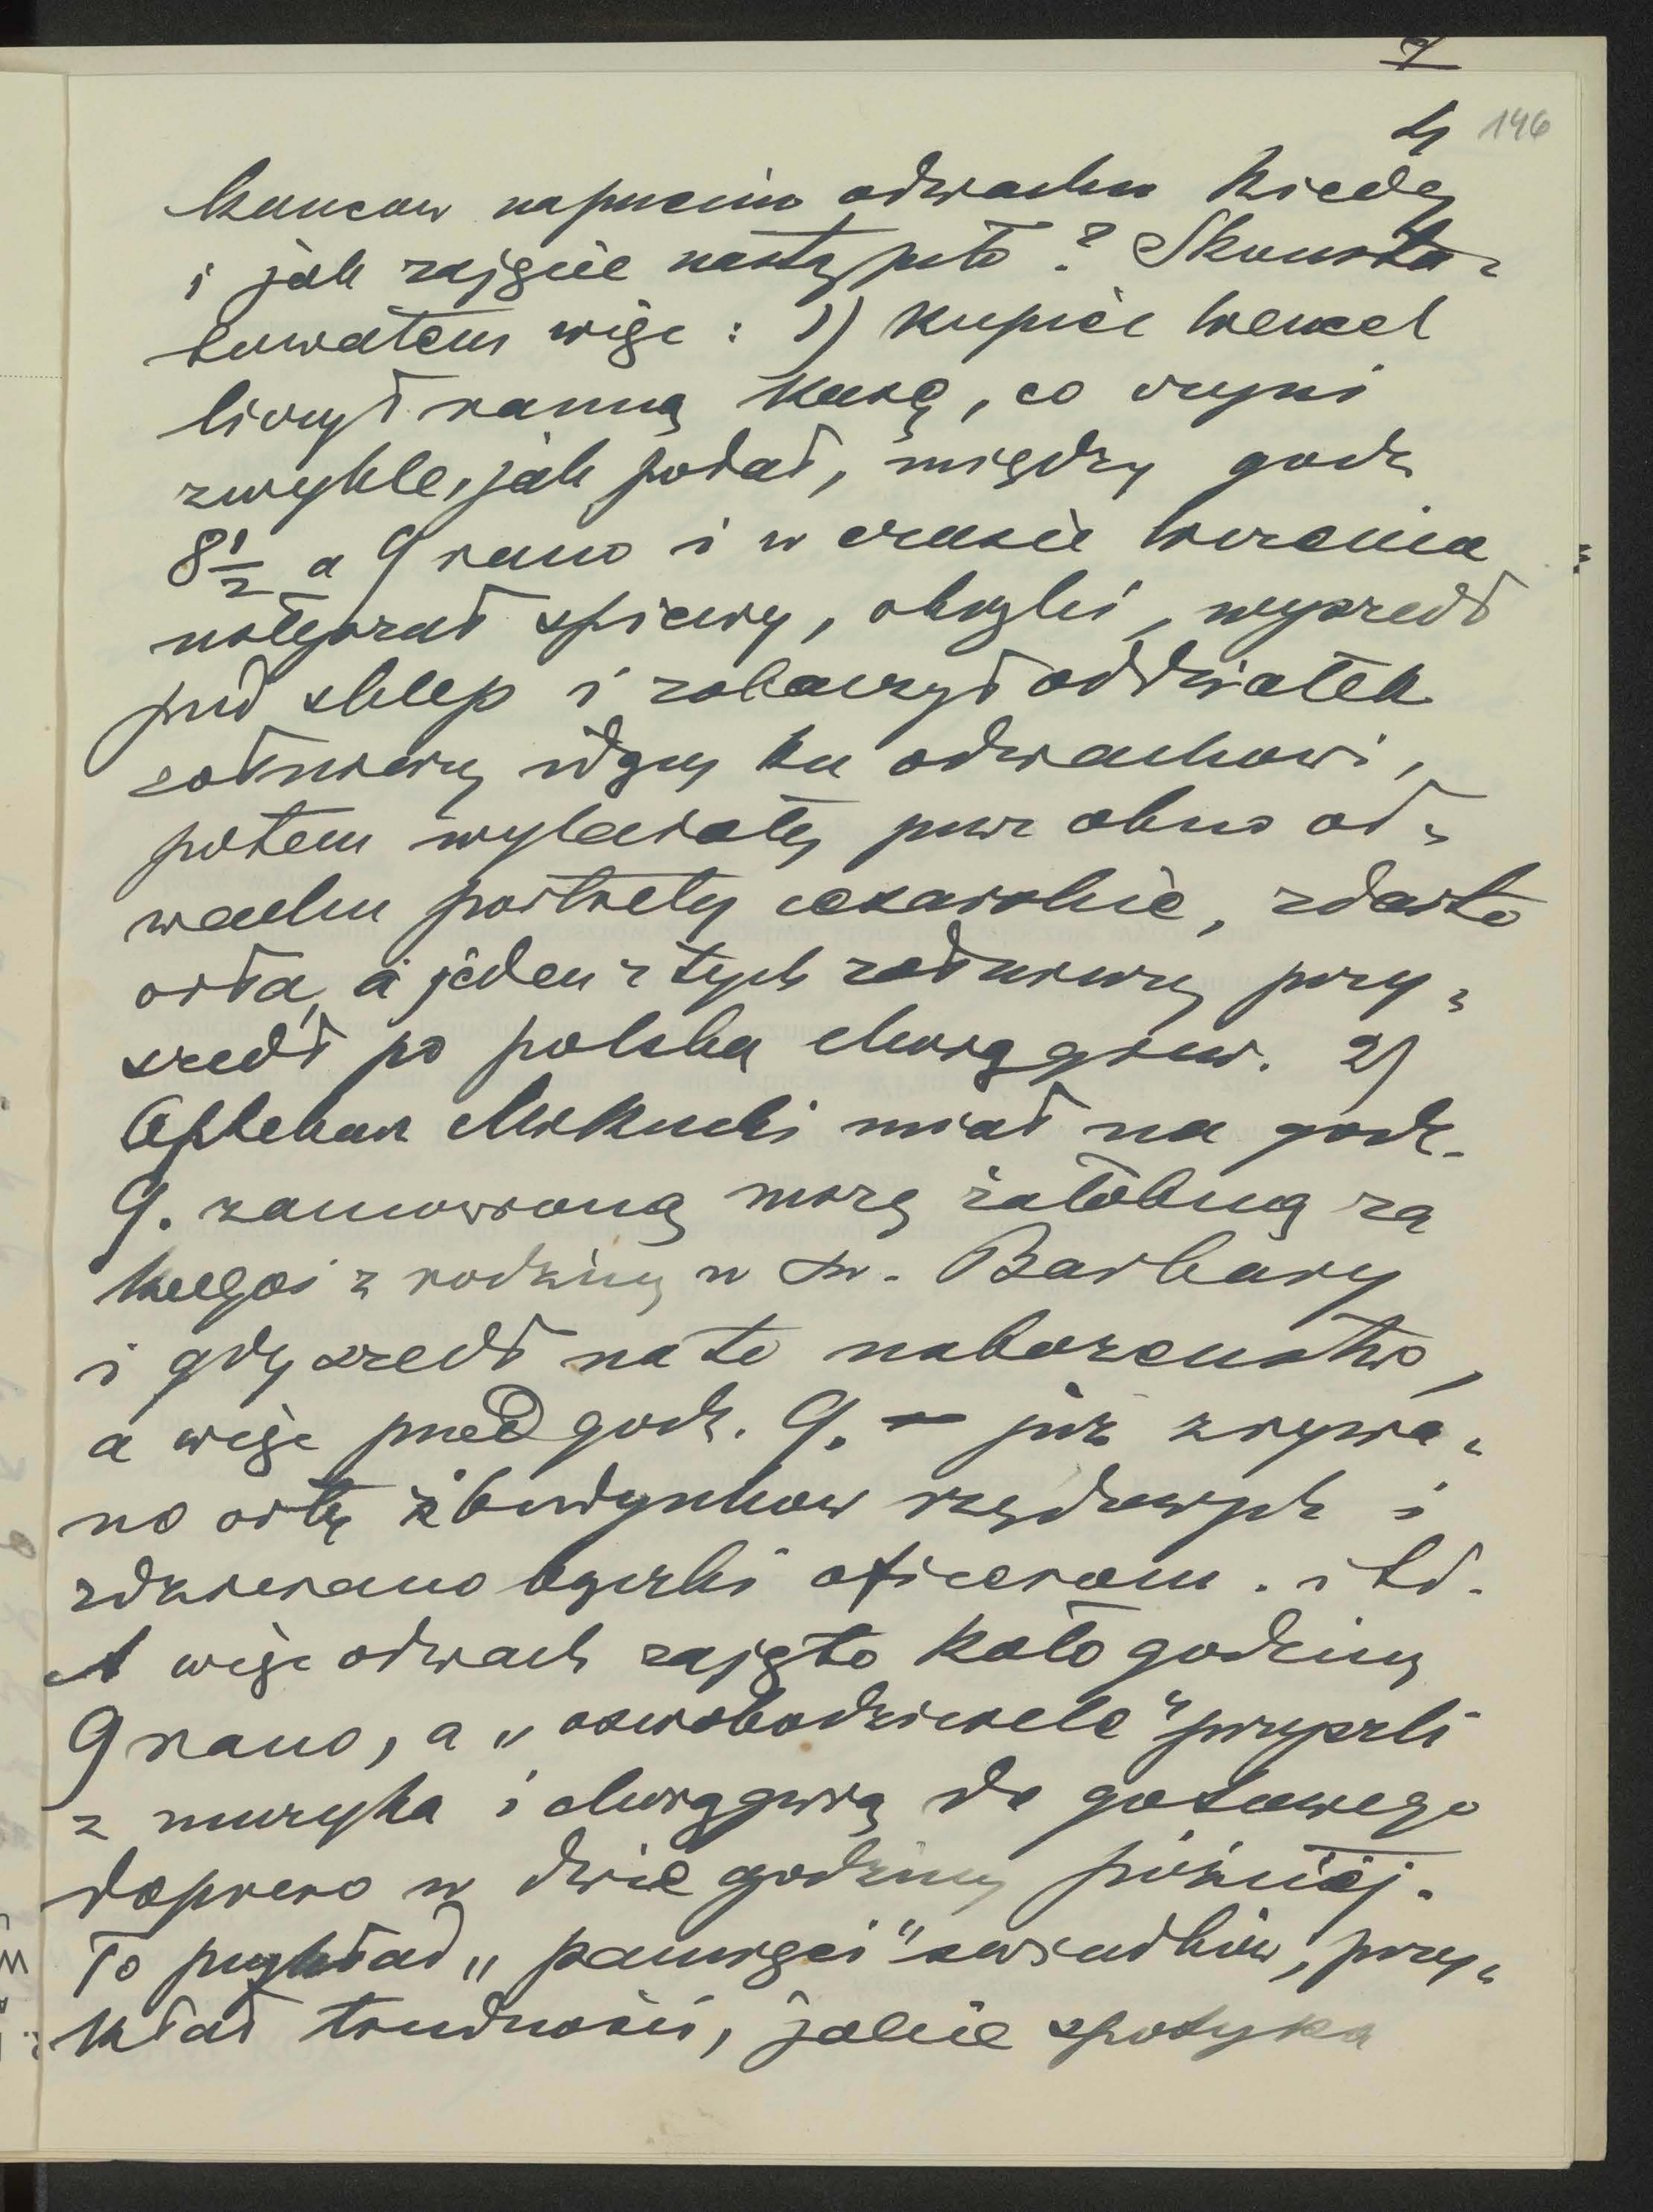 4 146
kańcow naprzeciw odwachu kiedy
i jak zajęcie nastąpiło? Skonsta-
towałem więc: 1) kupiec Wencel
liczył ranną kasę, co czyni
zwykle, jak podał, między godz
8½ a 9 rano i w czasie liczenia
usłyszał śpiewy, okrzyki, wyszedł
pod sklep i zobaczył oddziałek
żołnierzy idący ku odwachowi,
potem wylatały przez okno od-
wachu portrety cesarskie, zdarto
orła, a jeden z tych żołnierzy przy-
szedł po polską chorągiew. 2)
Aptekarz Mikucki miał na godz.
9. zamówioną mszę żałobną za
kogoś z rodziny w św. Barbary
i gdy szedł na to nabożeństwo,
a więc przed godz. 9. — już zrywa-
no orły z budynkow rządowych i
zdzierano bączki oficerom. itd.
A więc odwach zajęto koło godziny
9 rano, a „oswobodziciele" przyszli
z muzyką i chorągwią do gotowego
dopiero w dwie godziny później.
To przykład „pamięci" świadków, przy-
kład trudności, jakie spotyka